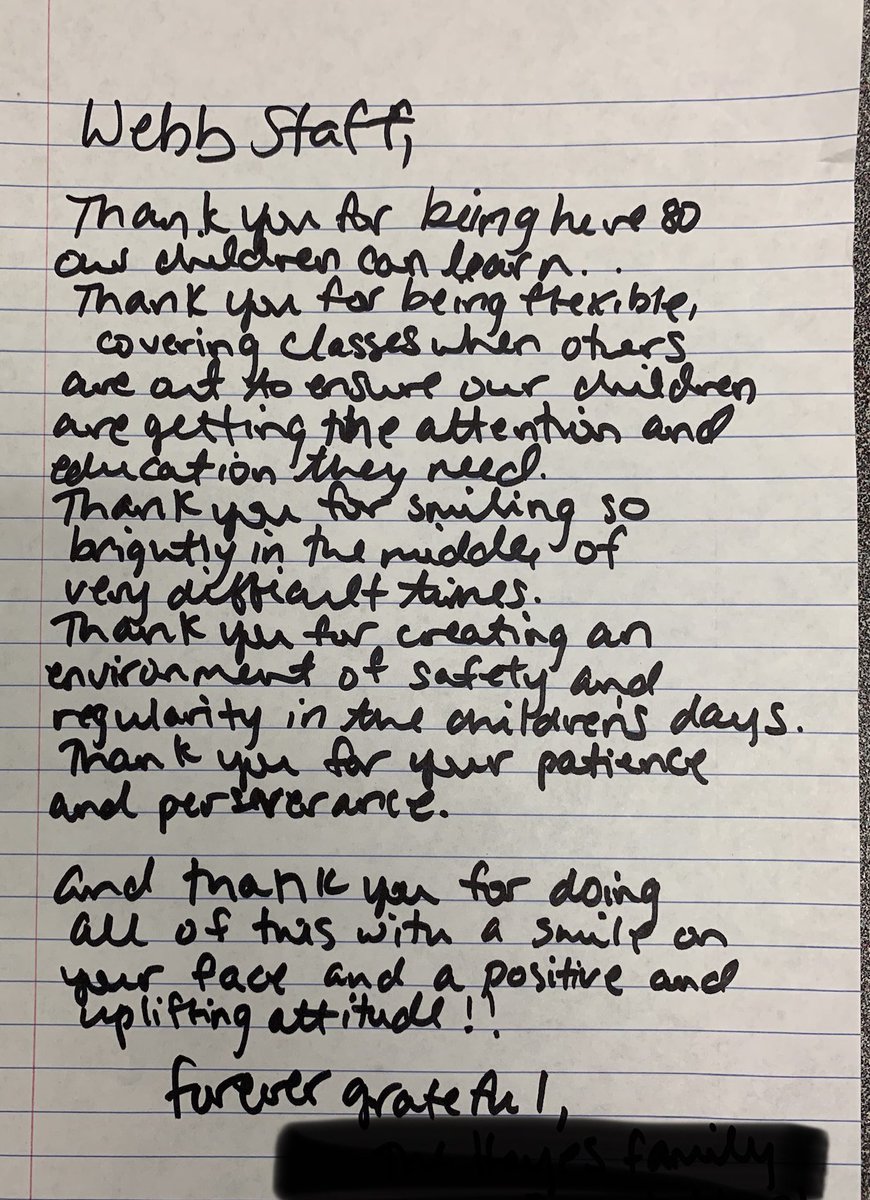 Webb Staff,
Thank you for being here so
our children can learn...
Thank you for being flexible,
covering classes when others
are out to ensure our children
are getting the attention and
education they need.
Thank you for smiling so
brightly in the middle of
very difficult times.
Thank you for creating an
environment of safety and
regularity in the children's days.
Thank you for your patience
and perseverance.
And thank you for doing
all of this with a smile on
your face and a positive and
uplifting attitude!!
forever grateful,
family